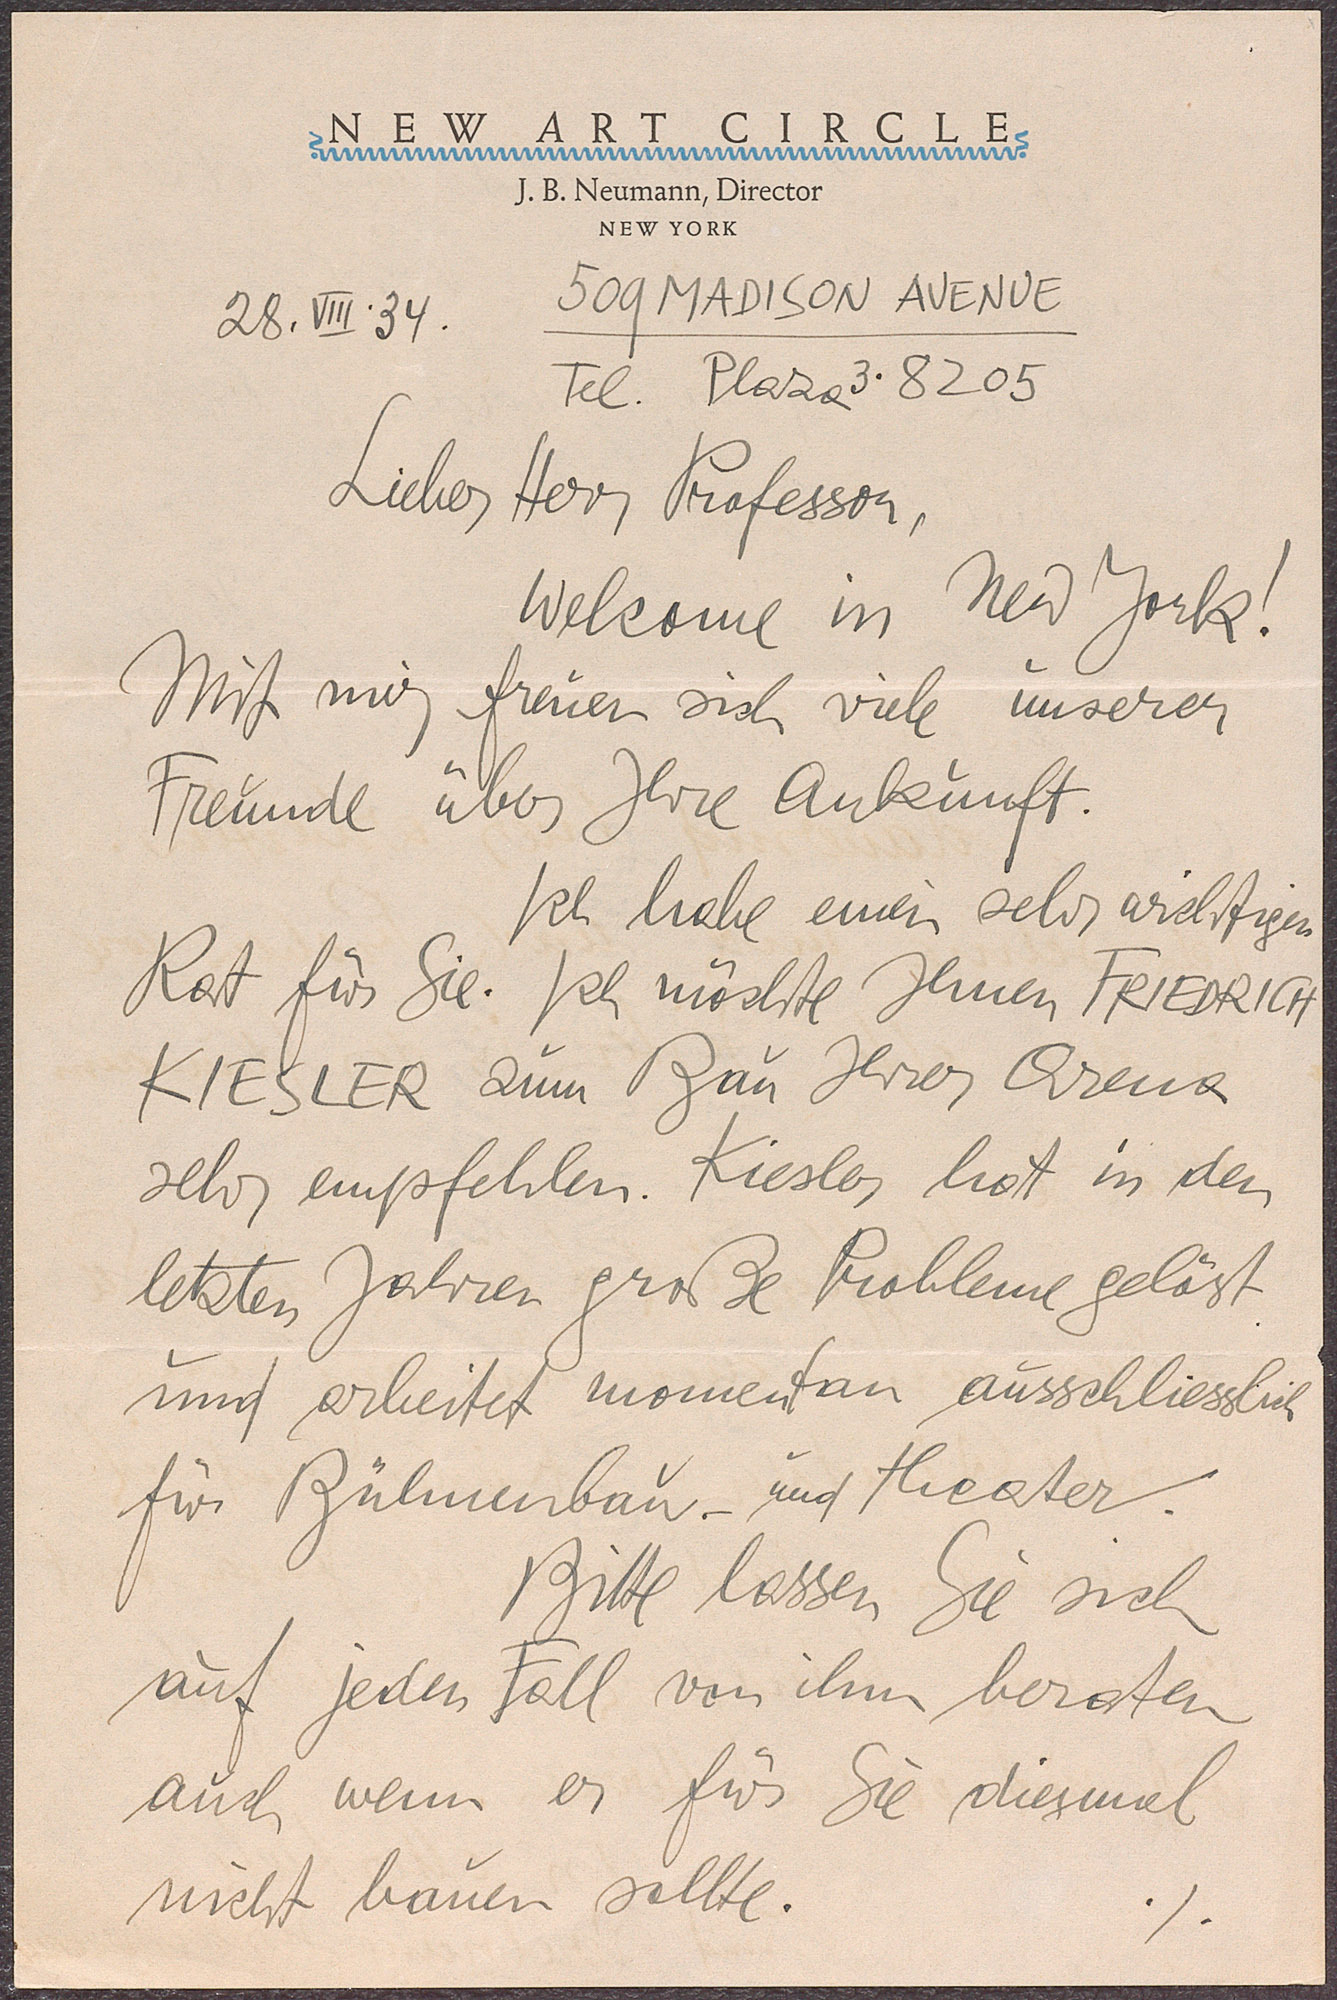 NEW ART CIRCLE
J. B. Neumann, Director
NEW YORK
28. VIII. 34.
509 MADISON AVENUE
Tel. Plaza 3. 8205
Lieber Herr Professor,
Welcome in New York!
Mit mir freuen sich viele unserer
Freunde über Ihre Ankunft.
Ich habe einen sehr wichtigen
Rat für Sie. Ich möchte Ihnen FRIEDRICH
KIESLER zum Bau Ihrer Arena
sehr empfehlen. Kiesler hat in den
letzten Jahren große Probleme gelöst
und arbeitet momentan ausschliesslich
für Bühnenbau- und Theater.
Bitte lassen Sie sich
auf jeden Fall von ihm beraten
auch wenn er für Sie diesmal
nicht bauen sollte.
./.